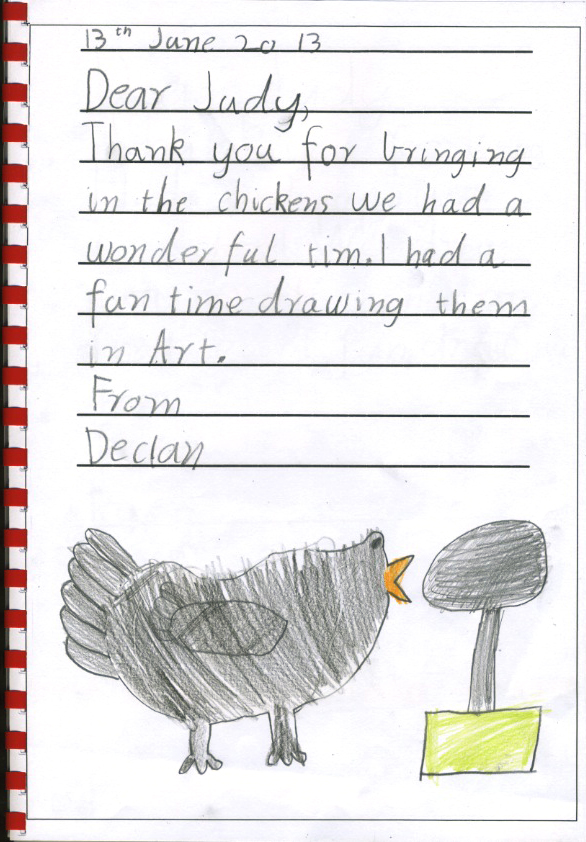 13th June 2013
Dear Judy,
Thank you for bringing
in the chickens we had a
wonderful tim. I had a
fun time drawing them
in Art.
From
Declan